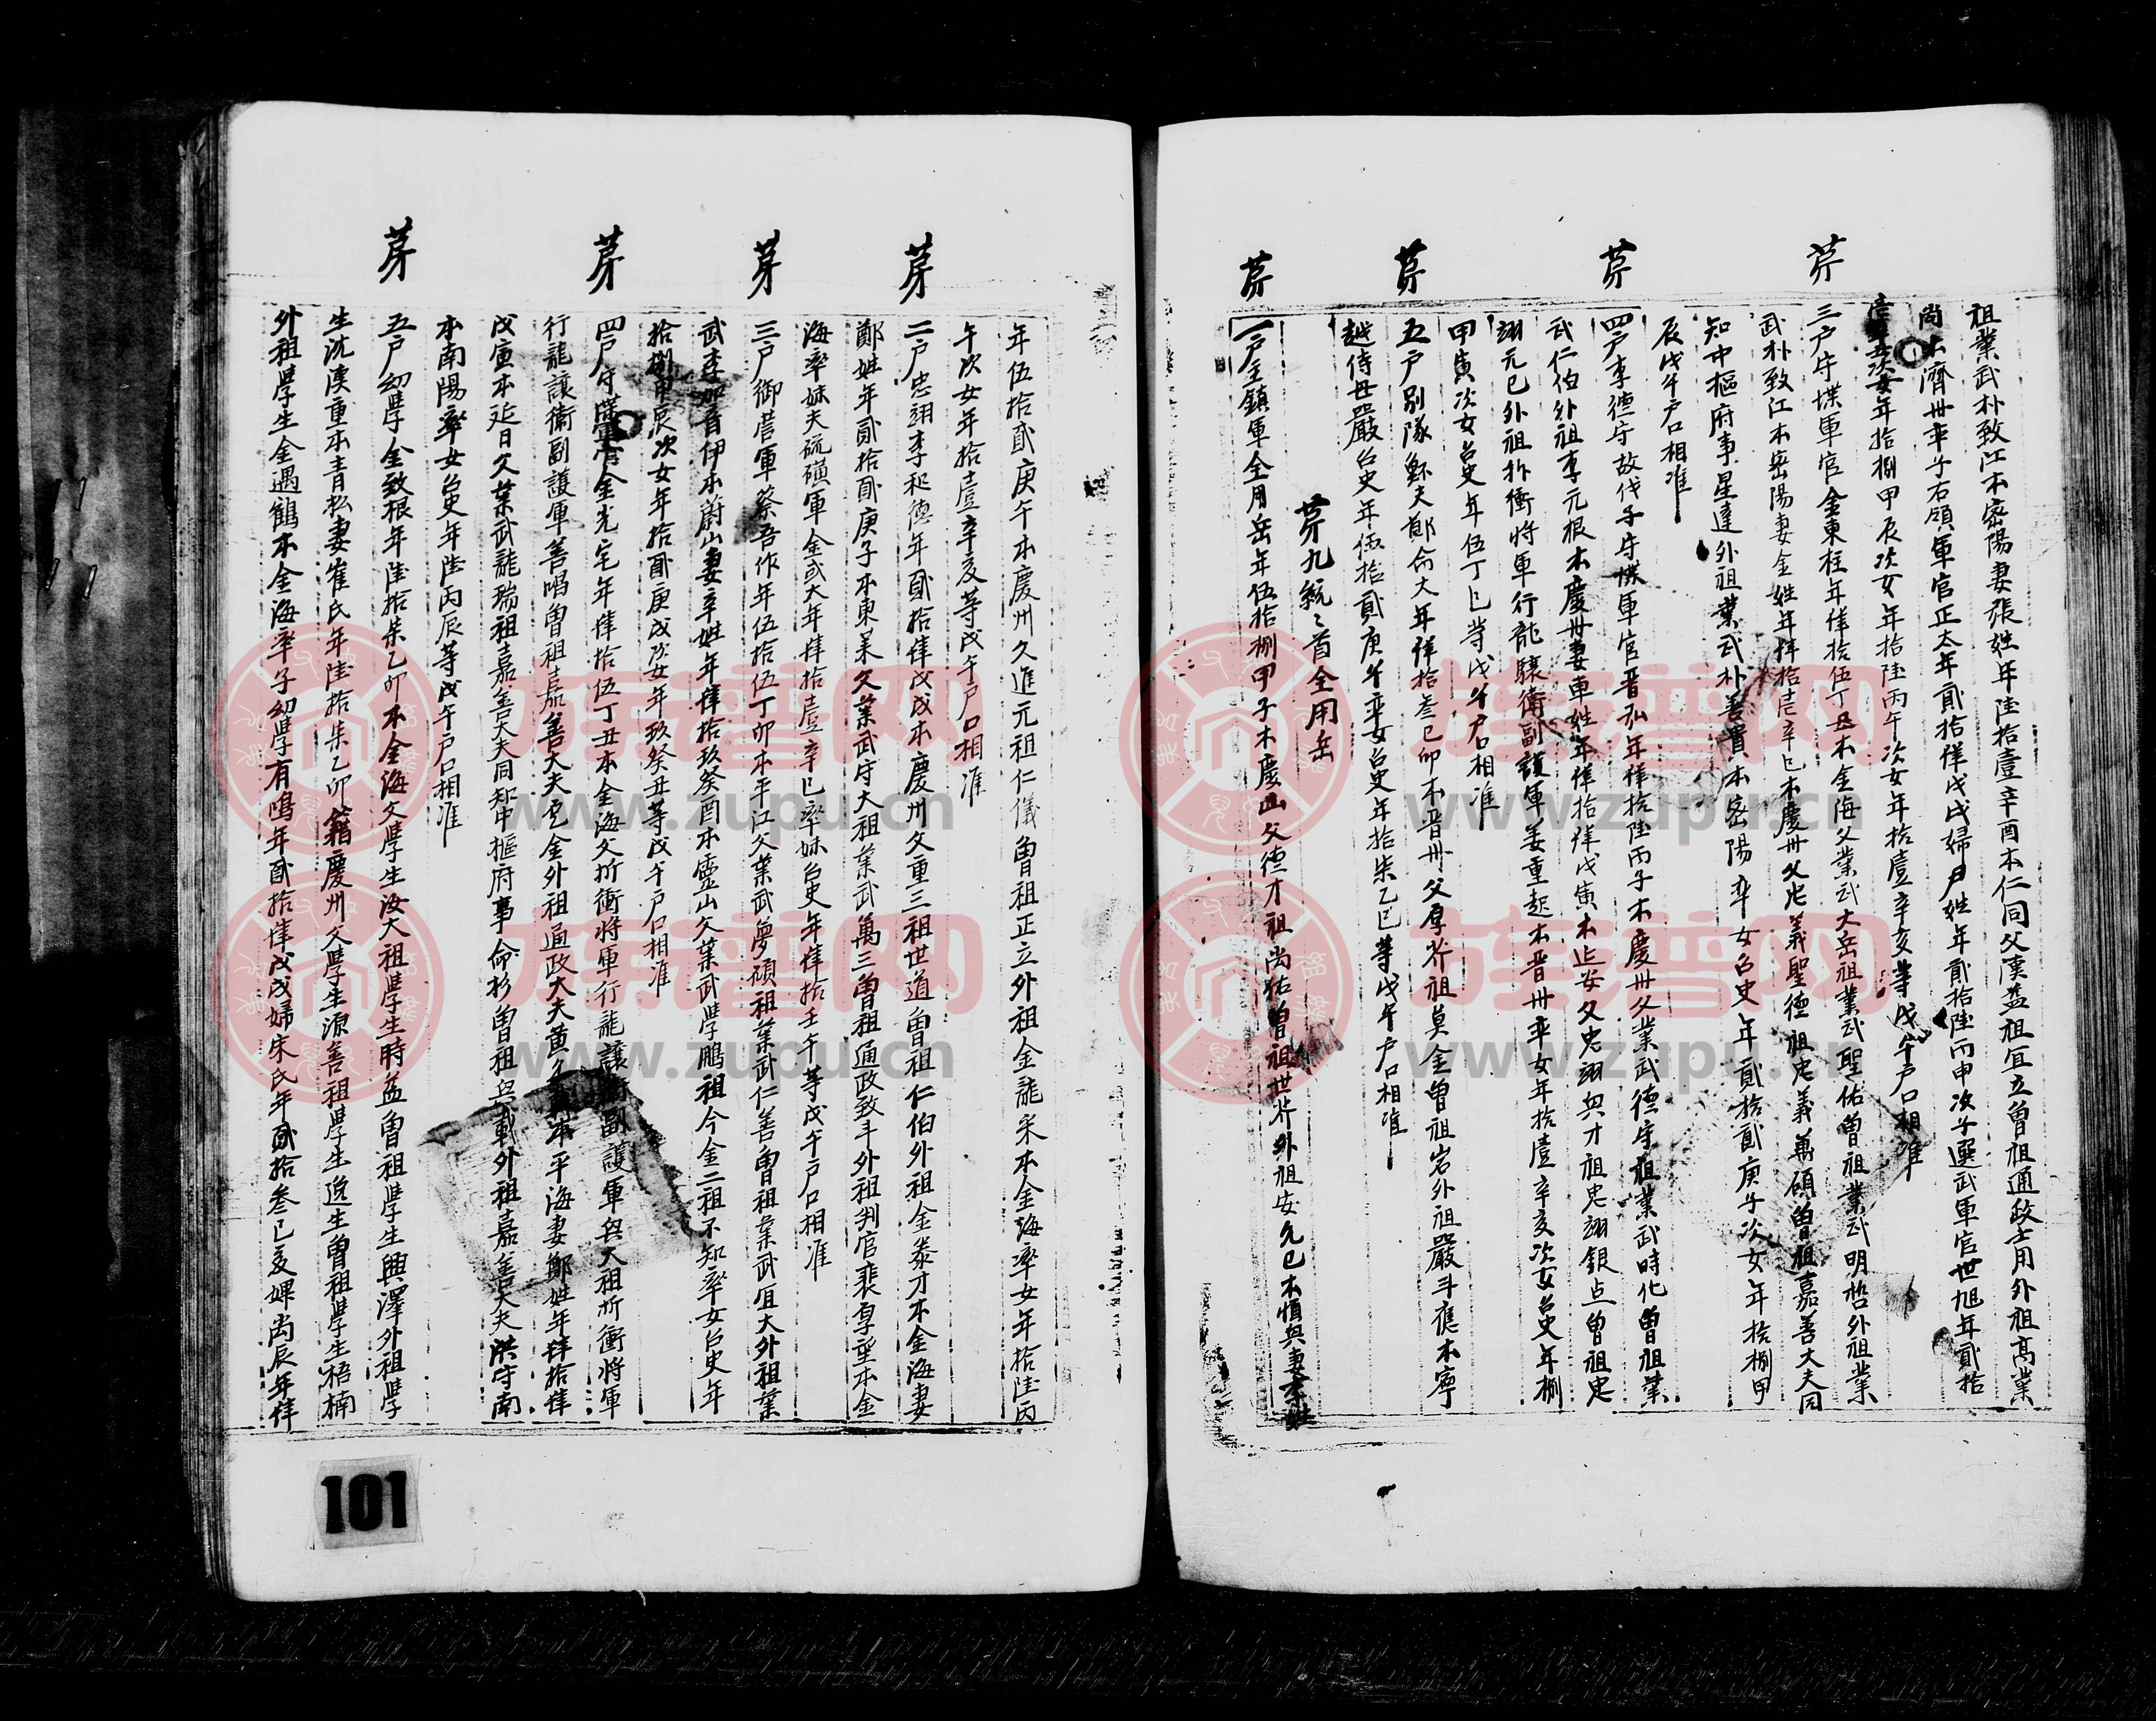 祖業武朴致江本密陽妻張姓年陸拾壹辛酉本仁同父漢益祖宜立曾祖通政士用外祖高業
尚本濟州率子右領軍官正太年貳拾肆戊戌婦尹姓年貳拾陸丙申次子選武軍官世旭年貳拾
次女年拾捌甲辰次女年拾陸丙午次女年拾壹辛亥等戊午戶口相准
芽
三戶守堞軍官金東柱年肆拾伍丁丑本金海父業武大岳祖業武聖佑曾祖業武明哲外祖業
武朴致江本密陽妻金姓年肆拾壹辛巳本慶州父忠義聖德祖忠義萬碩曾祖嘉善大夫同
知中樞府事星達外祖業武朴善實本密陽率女召史年貳拾貳庚子次女年拾捌甲
辰戊午戶口相准
芽
四戶李德守故代子守堞軍官晋弘年肆拾陸丙子本慶州父業武德守祖業武時化曾祖業
武仁伯外祖李元根本慶州妻車姓年肆拾肆戊寅本延安父忠翊興才祖忠翊銀点曾祖忠
翊元已外祖折衝將軍行龍驤衛副護軍姜重起本晋州率女年拾壹辛亥次女召史年捌
甲寅次女召史年伍丁巳等戊午戶口相准
芽
五戶別隊鰥夫鄭命大年肆拾叁己卯本晋州父厚芥祖莫金曾祖岩外祖嚴斗應本寧
越侍母嚴召史年伍拾貳庚午率女召史年拾柒乙巳等戊午戶口相准
芽九統々首金用岳
芽
一戶全鎮軍金用岳年伍拾捌甲子本慶山父德才祖尚佑曾祖世芥外祖安允已本順興妻李姓
年伍拾貳庚午本慶州父進元祖仁儀曾祖正立外祖金龍采本金海率女年拾陸丙
午次女年拾壹辛亥等戊午戶口相准
芽
二戶忠翊李起德年貳拾肆戊戌本慶州父重三祖世道曾祖仁伯外祖金泰才本金海妻
鄭姓年貳拾貳庚子本東萊父業武守大祖業武萬三曾祖通政致斗外祖判官裴厚望本金
海率妹夫硫磺軍金或大年肆拾壹辛巳率妹召史年肆拾壬午等戊午戶口相准
芽
三戶御營軍蔡吾作年伍拾伍丁卯本平江父業武夢碩祖業武仁善曾祖業武宜大外祖業
武李加音伊本蔚山妻辛姓年肆拾玖癸酉本靈山父業武學鵬祖今金二祖不知率女召史年
拾捌甲辰次女年拾貳庚戌次女年玖癸丑等戊午戶口相准
芽
四戶守堞軍官金光宅年肆拾伍丁丑本金海父折衝將軍行龍讓衛副護軍興大祖折衝將軍
行龍讓衛副護軍善唱曾祖嘉善大夫乭金外祖通政大夫黃本平海妻鄭姓年肆拾肆
戊寅本延日父業武龍瑞祖嘉善大夫同知中樞府事命杉曾祖興載外祖嘉善大夫洪守南
本南陽率女召史年陸丙辰等戊午戶口相准
芽
五戶幼學金致根年陸拾柒乙卯本金海父學生汝大祖學生時益曾祖學生興澤外祖學
生沈漢重本青松妻崔氏年陸拾柒乙卯籍慶州父學生源善祖學生逸生曾祖學生梧楠
外祖學生金遇鶴本金海率子幼學有鳴年貳拾肆戊戌婦朱氏年貳拾叁己亥婢尚辰年肆
101
族谱网
www.zupu.cn
族谱网
www.zupu.cn
族谱网
www.zupu.cn
族谱网
www.zupu.cn